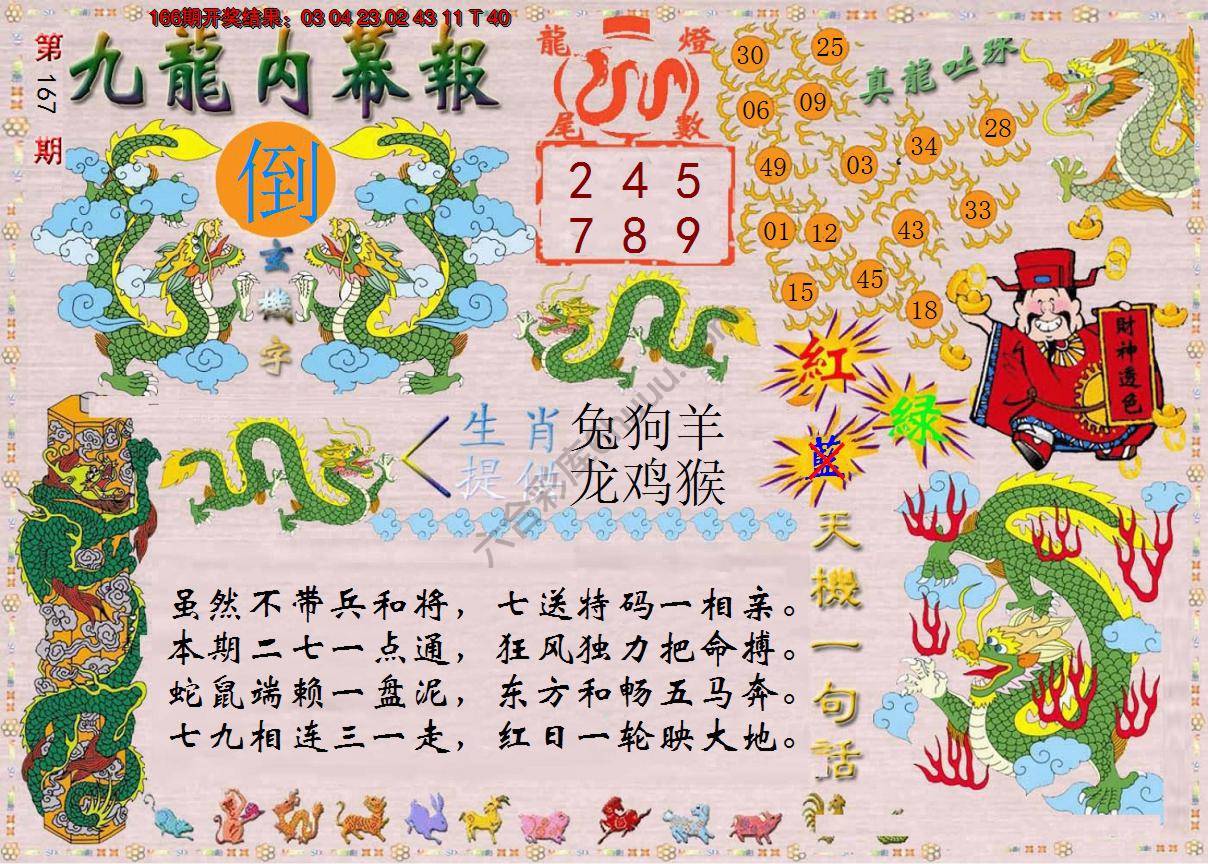 166期开奖结果：03 04 23 02 43 11 T 40
第167期
九龍内幕報
倒
玄機字
龍燈
尾數
2 4 5
7 8 9
真龍吐珠
30 25
06 09
49 03 34 28
01 12 43 33
15 45 18
財神透色
紅
綠
藍
生肖 兔狗羊
提供 龙鸡猴
天機一句話
虽然不带兵和将，七送特码一相亲。
本期二七一点通，狂风独力把命搏。
蛇鼠端赖一盘泥，东方和畅五马奔。
七九相连三一走，红日一轮映大地。